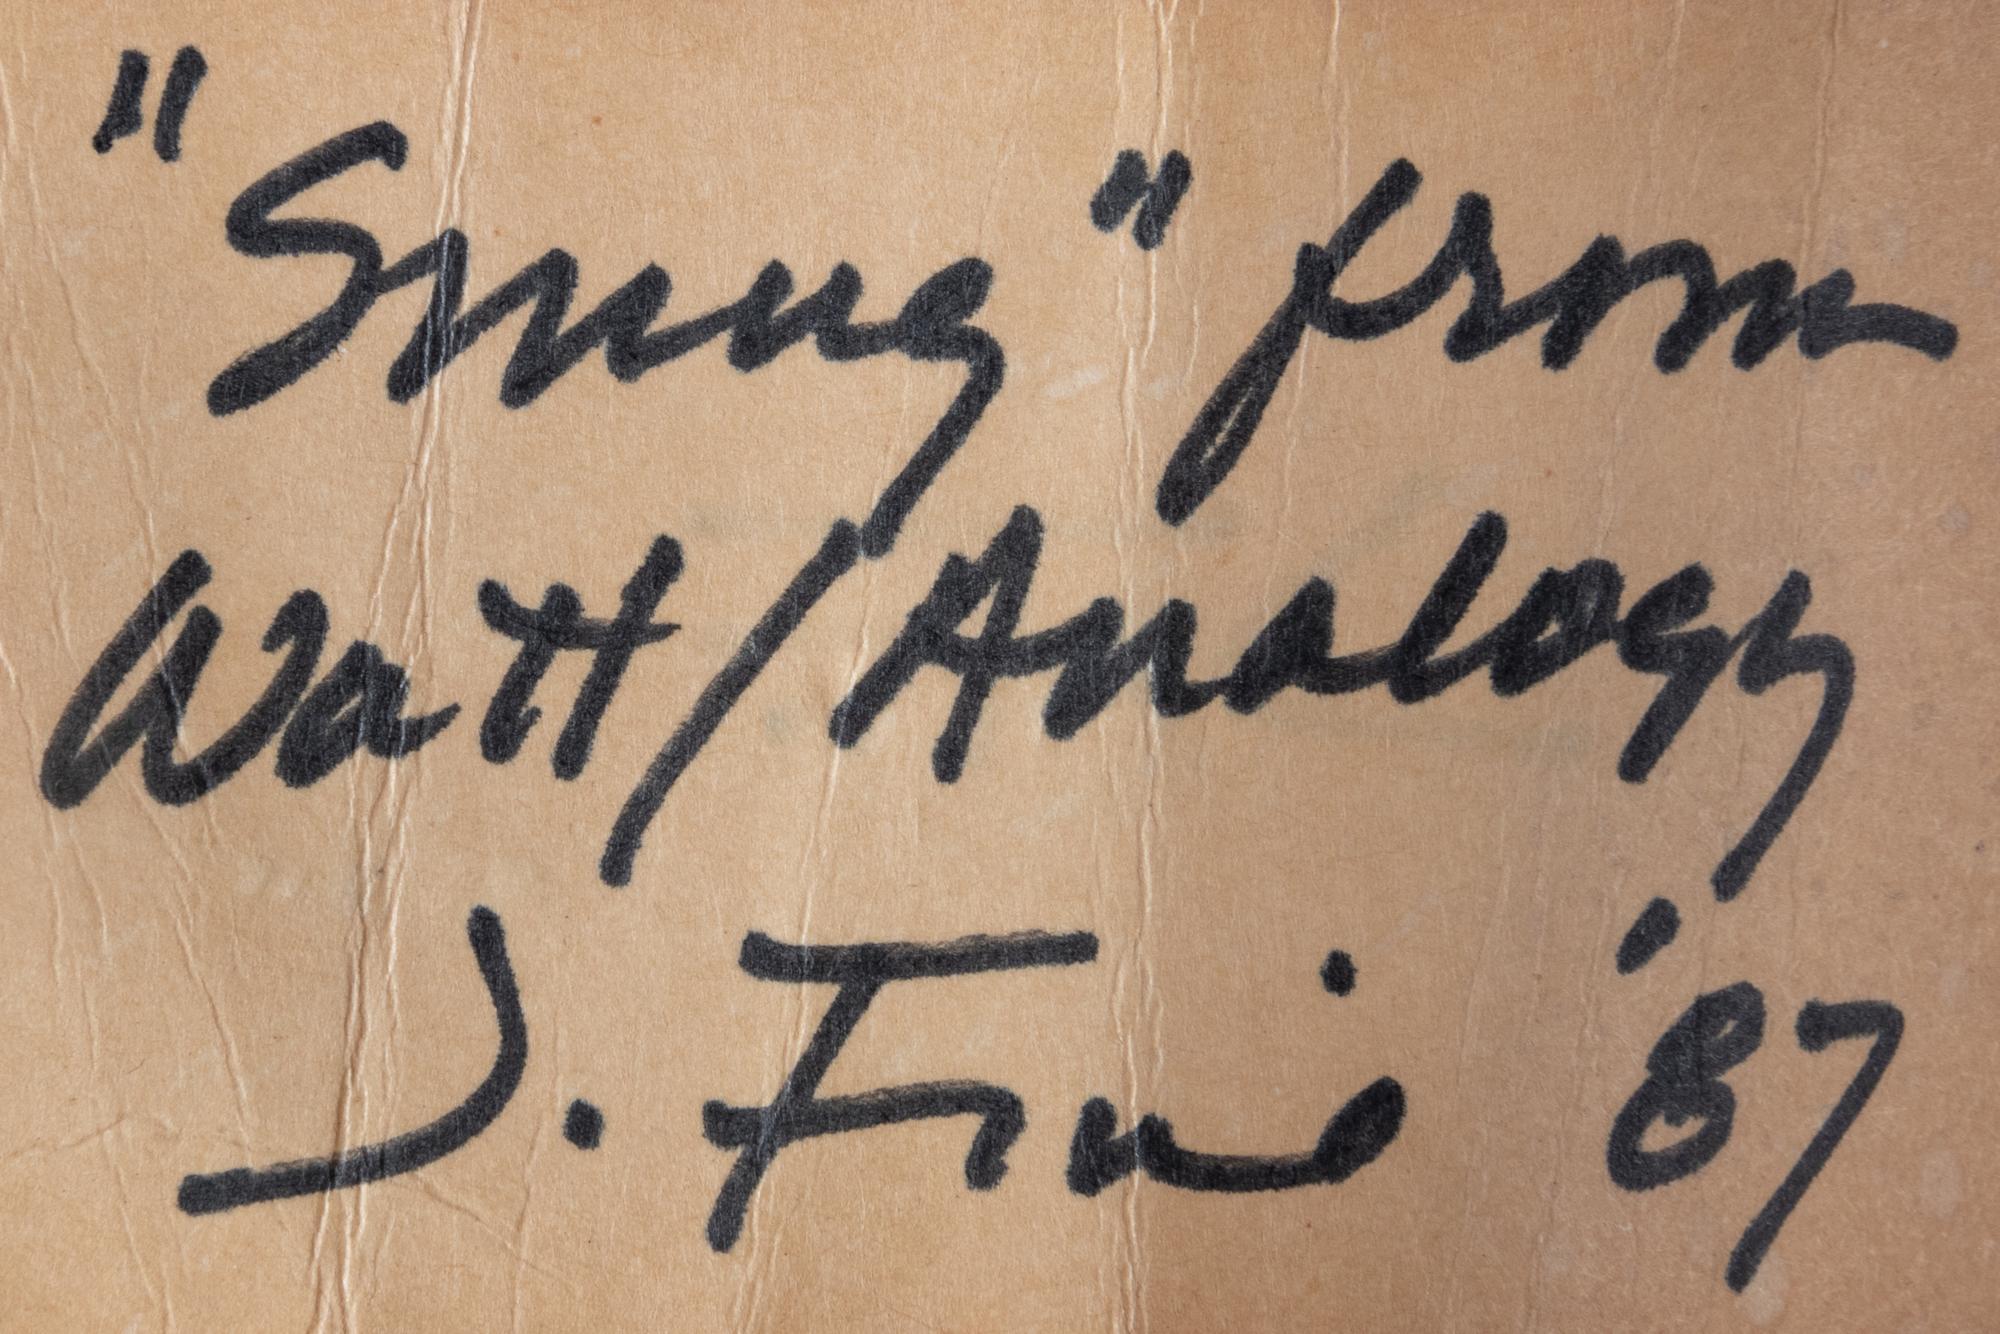 "Smug" from
Watt/Analogy
J. Fini '87